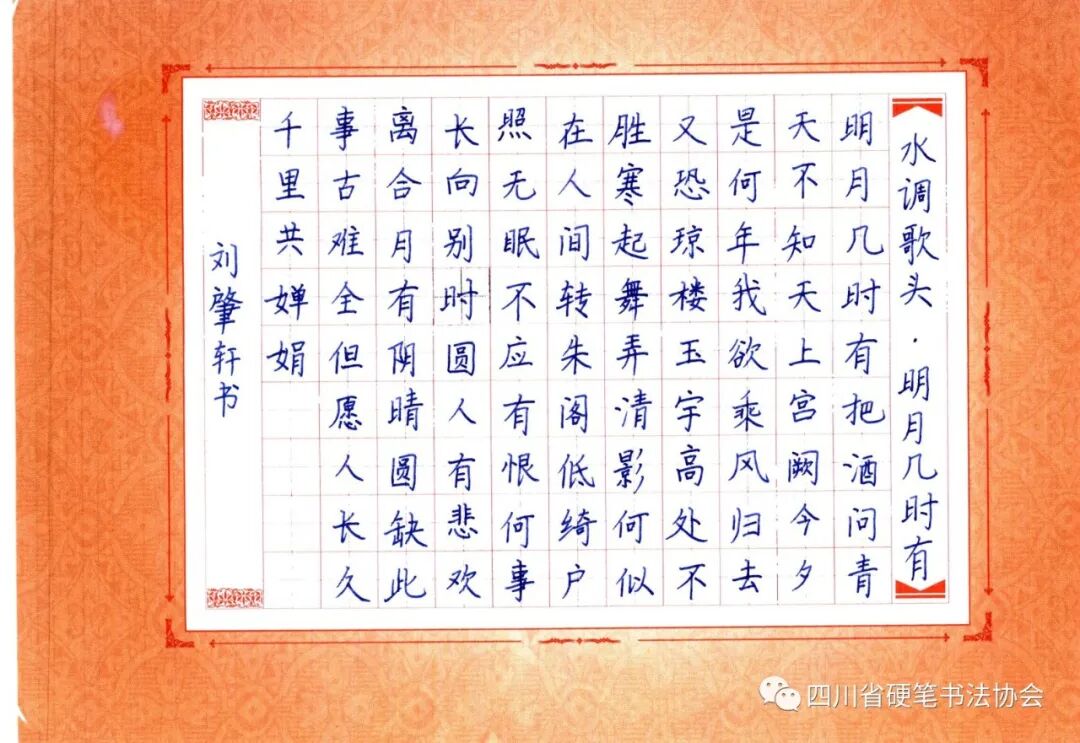 水调歌头·明月几时有
明月几时有把酒问青
天不知天上宫阙今夕
是何年我欲乘风归去
又恐琼楼玉宇高处不
胜寒起舞弄清影何似
在人间转朱阁低绮户
照无眠不应有恨何事
长向别时圆人有悲欢
离合月有阴晴圆缺此
事古难全但愿人长久
千里共婵娟
刘肇轩书
四川省硬笔书法协会